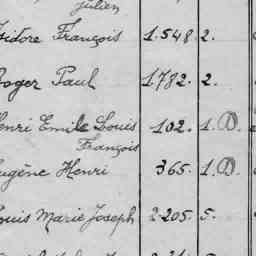 Julien
Isidore François 1.548 2.
Roger Paul 1.782. 2.
Henri Emile Louis 102. 1.D.
François
Eugène Henri 365. 1.D.
Louis Marie Joseph 2.205. 5.